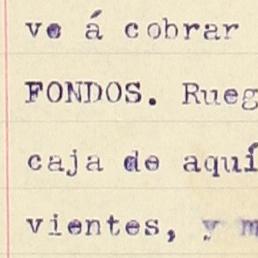 ve á cobrar
FONDOS. Rueg
caja de aquí
vientes, y m